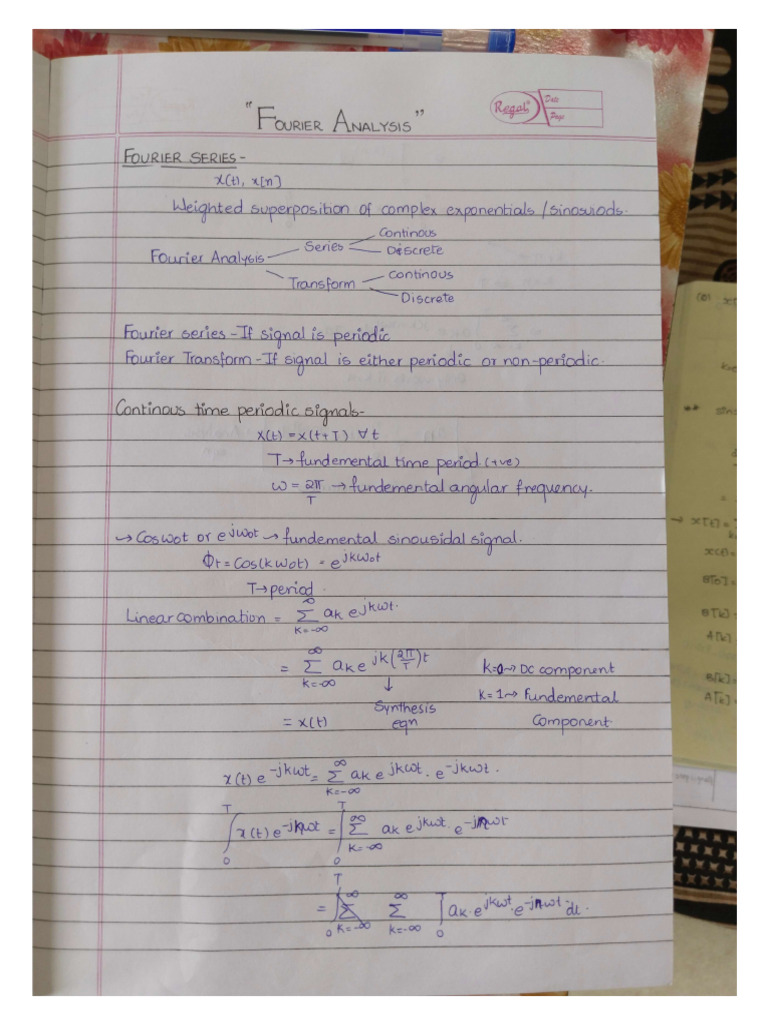 "FOURIER ANALYSIS"
Regal
Date
Page
FOURIER SERIES-
x(t), x[n]
Weighted superposition of complex exponentials/sinosuiods.
Continous
Series
Discrete
Fourier Analysis
Continous
Transform
Discrete
Fourier series - If signal is periodic
Fourier Transform - If signal is either periodic or non-periodic.
Continous time periodic signals-
x(t) = x(t+T) ∀ t
T → fundemental time period (+ve)
ω = 2π/T → fundemental angular frequency.
→ Cosω₀t or e^jω₀t → fundemental sinousidal signal.
Φt = Cos(kω₀t) = e^jkω₀t
T → period.
Linear combination = ∑_{k=-∞}^{∞} ak e^jkωt.
= ∑_{k=-∞}^{∞} ak e^jk(2π/T)t
k=0 → DC component
↓
Synthesis
k=1 → Fundemental
= x(t)
eqn
Component
x(t) e^-jkωt = ∑_{k=-∞}^{∞} ak e^jkωt. e^-jkωt.
∫_0^T x(t) e^-jnωt = ∫_0^T ∑_{k=-∞}^{∞} ak e^jkωt. e^-jnωt
= ∫_0^T ∑_{k=-∞}^{∞} ∑_{k=-∞}^{∞} ∫_0^T ak.e^jkωt.e^-jnωt dt.